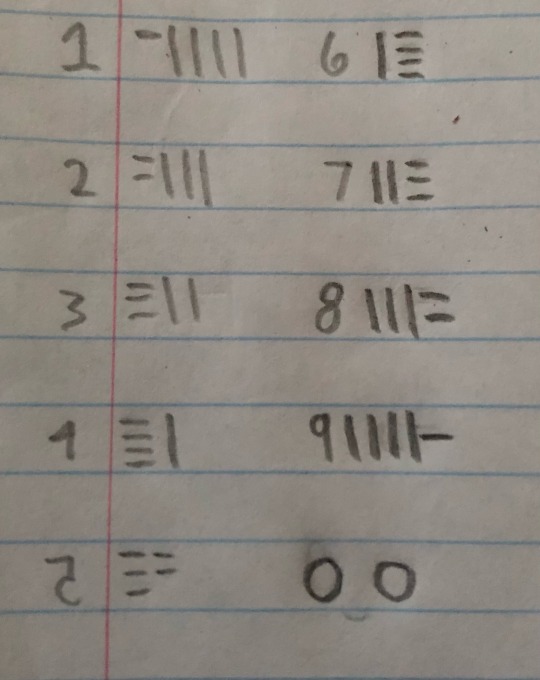 1 -|||| 6 |≡
2 =||| 7 ||≡
3 ≡|| 8 |||=
4 ≣| 9 ||||-
5 ≡= 0 0